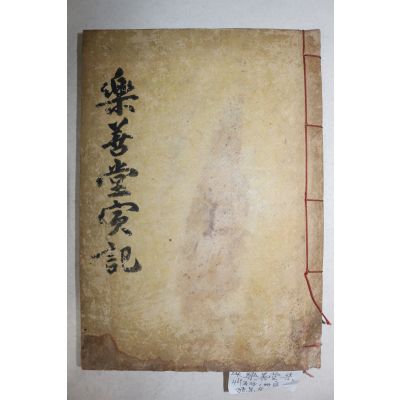 樂善堂實記